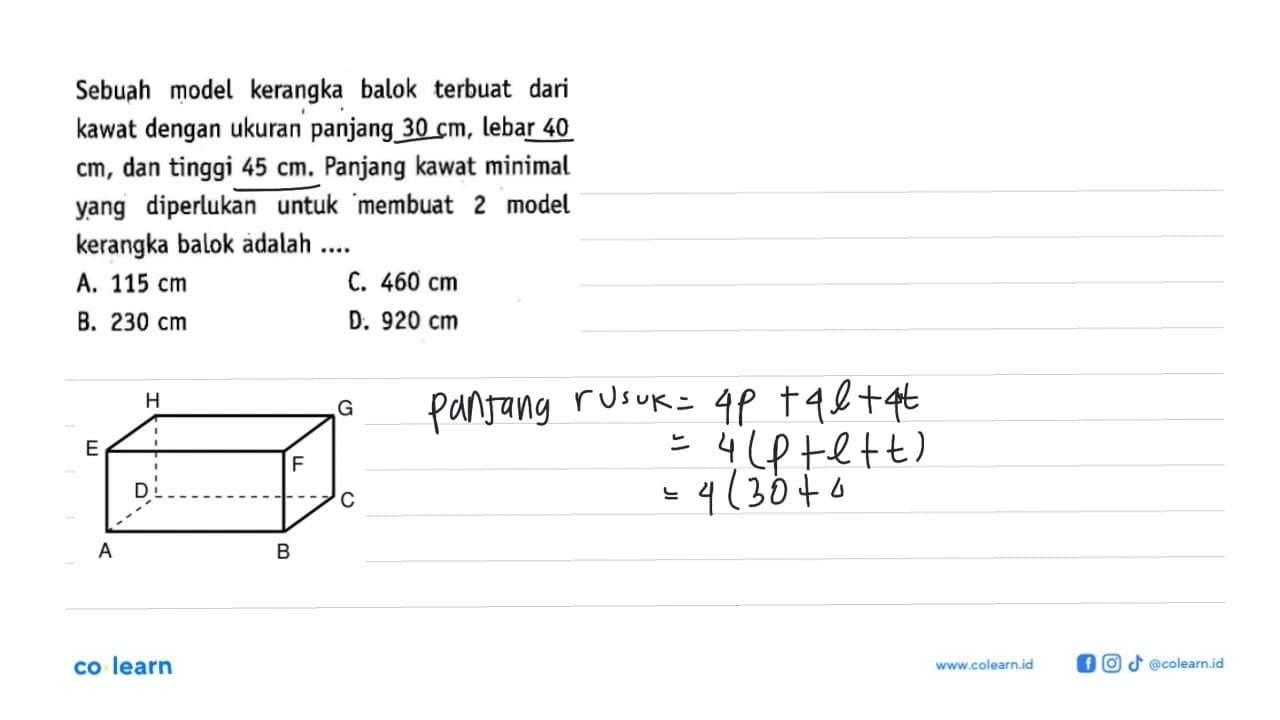 Sebuah model kerangka balok terbuat dari
kawat dengan ukuran panjang 30 cm, lebar 40
cm, dan tinggi 45 cm. Panjang kawat minimal
yang diperlukan untuk membuat 2 model
kerangka balok adalah ....
A. 115 cm
C. 460 cm
B. 230 cm
D. 920 cm
H
G
E
F
D
C
A
B
panjang rusuk = 4p + 4l + 4t
= 4 (p + l + t)
= 4 (30 + 
co learn
www.colearn.id
@colearn.id